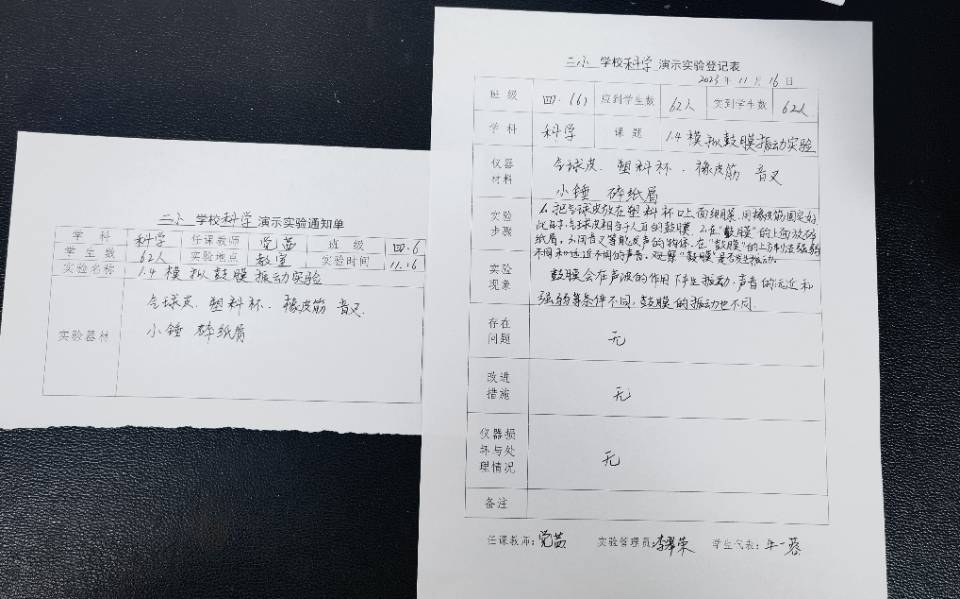 二小 学校科学演示实验通知单
学科 科学 任课教师 党蕾 班级 四.6
学生数 62人 实验地点 教室 实验时间 11.16
实验名称 1.4模拟鼓膜振动实验
气球皮. 塑料杯. 橡皮筋 音叉.
实验器材 小锤 碎纸屑
二小 学校科学演示实验登记表
2023年11月16日
班级 四.(6) 应到学生数 62人 实到学生数 62人
学科 科学 课题 1.4模拟鼓膜振动实验
仪器材料 气球皮. 塑料杯. 橡皮筋 音叉
小锤 碎纸屑
实验步骤 1.把气球皮放在塑料杯口上面绷紧.用橡皮筋固定好
此时气球皮相当于人耳的鼓膜. 2.在“鼓膜”的上面放碎
纸屑. 3.用音叉等能发声的物体.在“鼓膜”的上方制造强弱
不同和远近不同的声音.观察“鼓膜”是否发生振动.
实验现象 鼓膜会在声波的作用下产生振动.声音的远近和
强弱等条件不同.鼓膜的振动也不同.
存在问题 无
改进措施 无
仪器损坏与处理情况 无
备注
任课教师: 党蕾 实验管理员: 李翠荣 学生代表: 牛一蓉